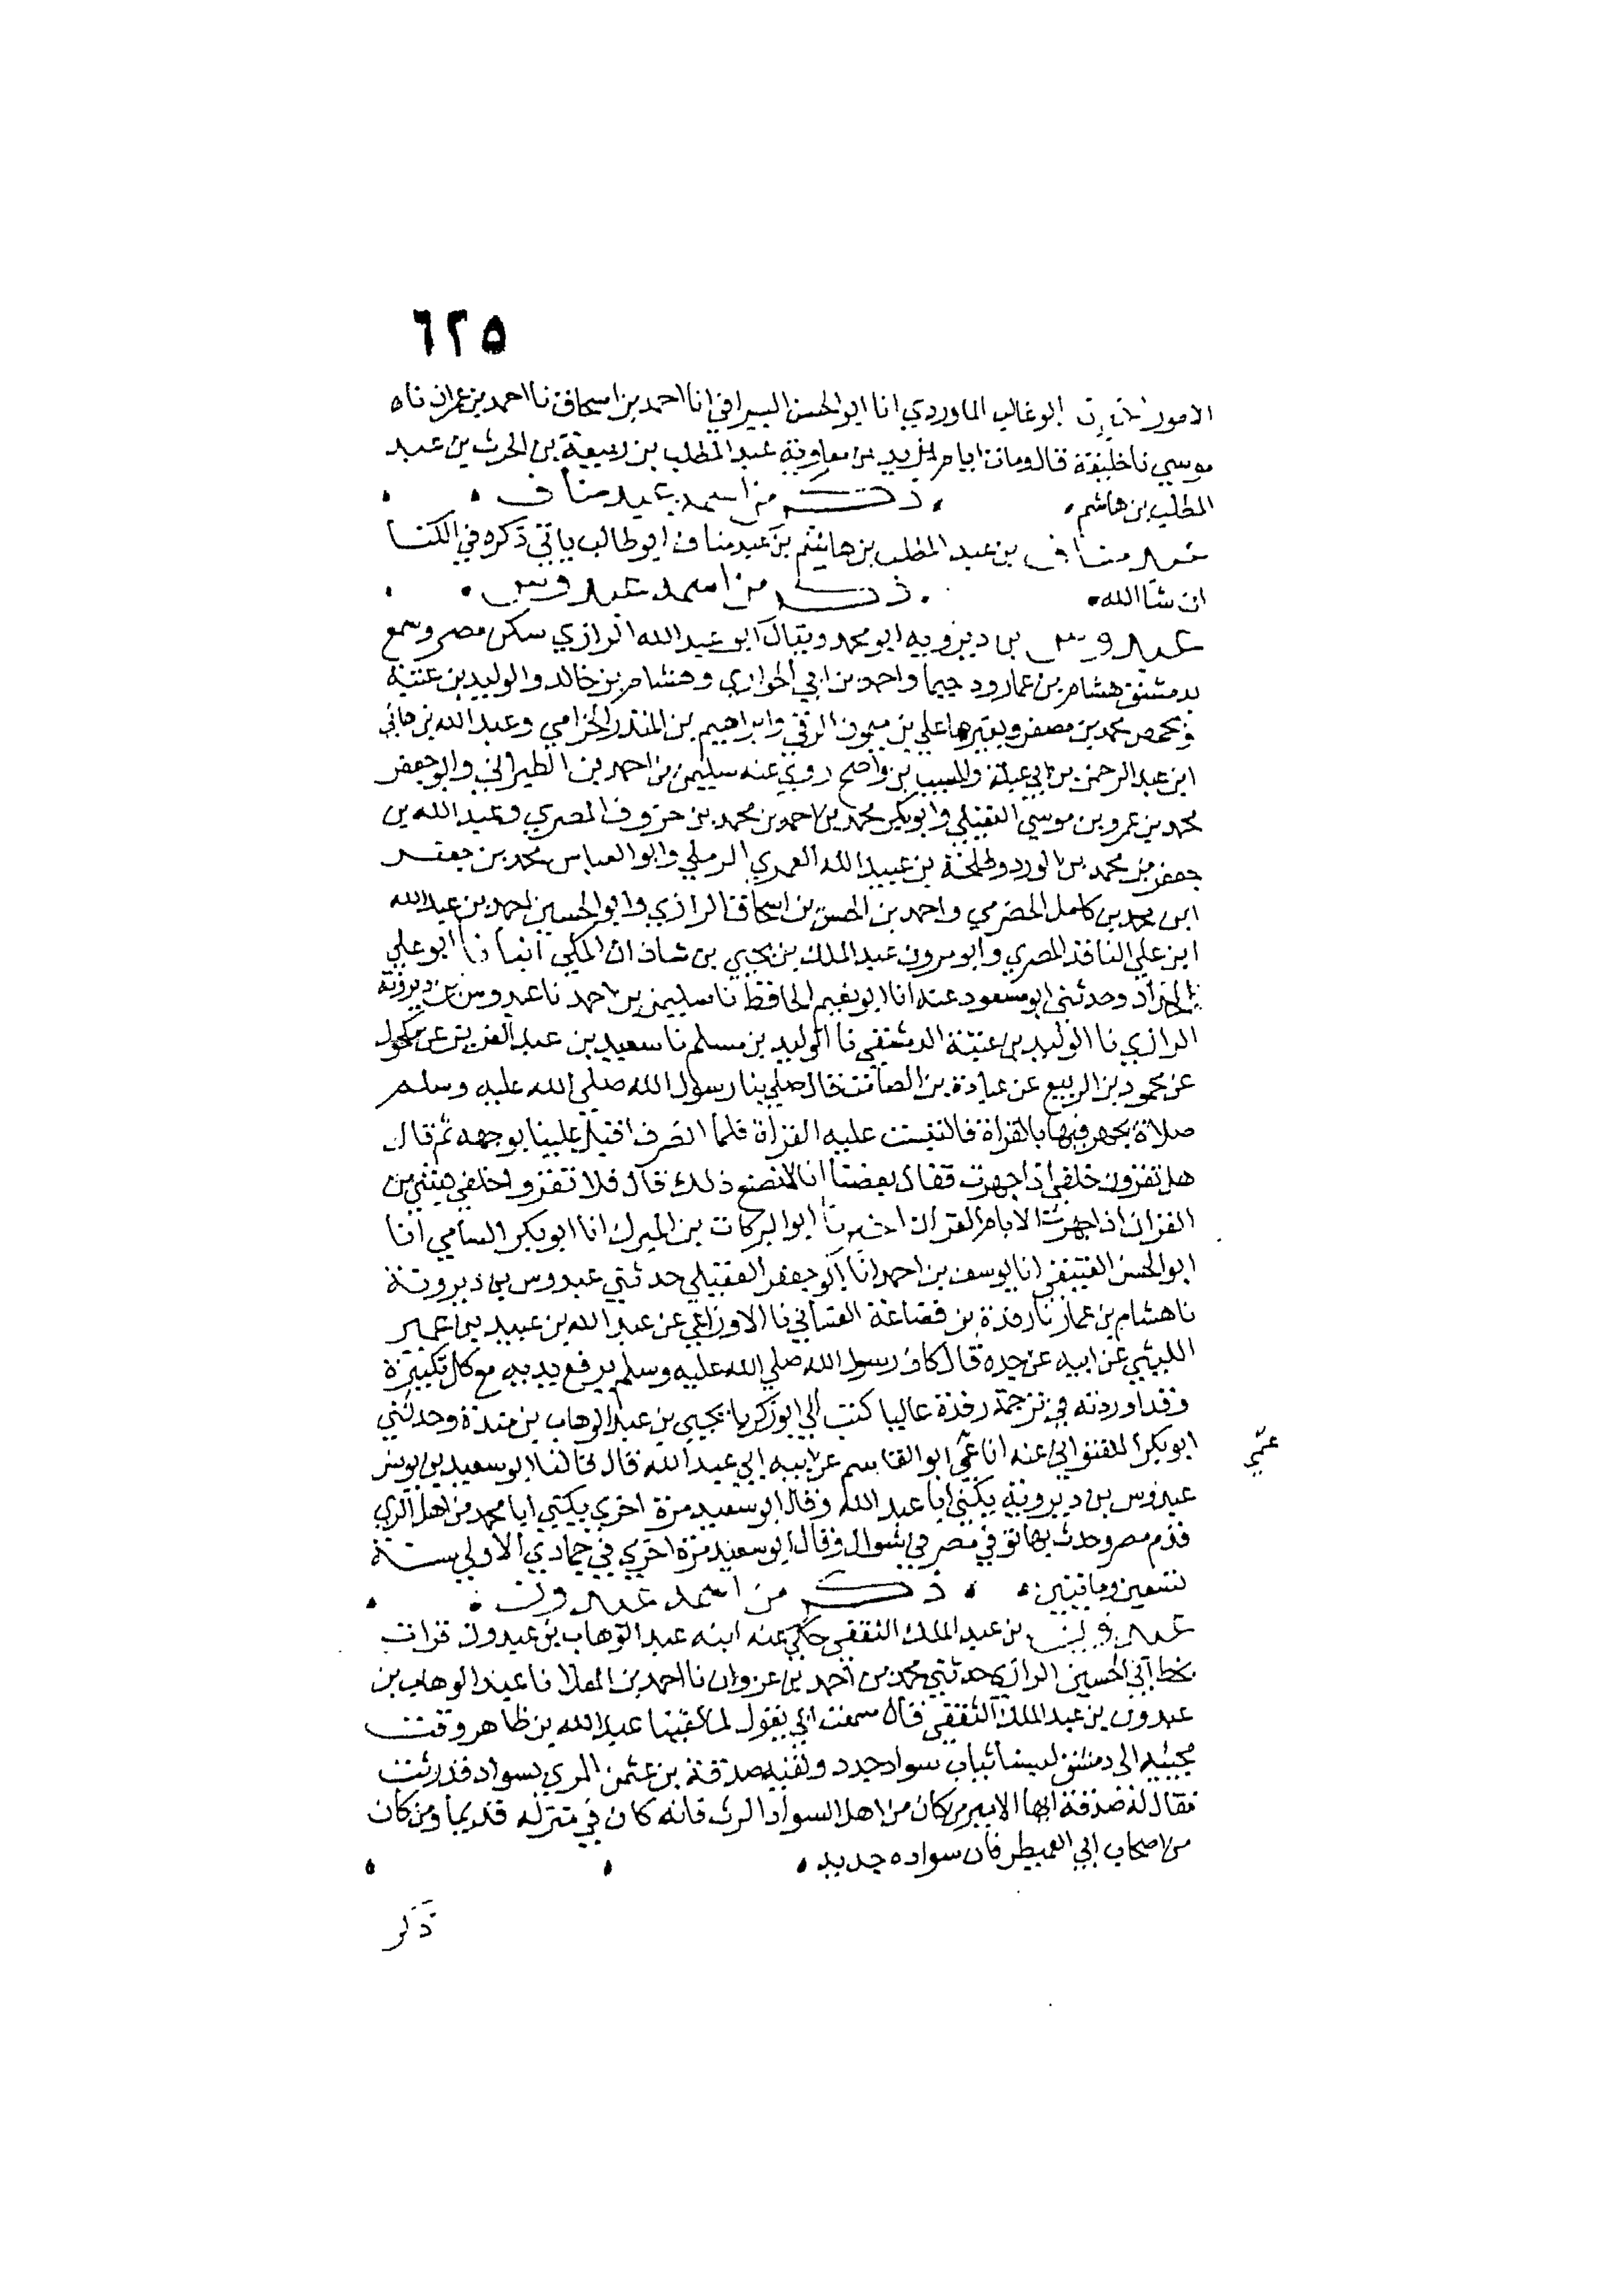 ٦٢٥
الامور اخبرنا ابو غالب الماوردي انا ابو الحسن السيرافي انا احمد بن اسحاق نا احمد بن عمران نا
موسي نا خليفة قال ومات ايام يزيد بن معاوية عبد المطلب بن ربيعة بن الحرث بن عبد
المطلب بن هاشم ذكر من اسمه عبد مناف
عبد مناف بن عبد المطلب بن هاشم بن عبد مناف ابو طالب ياتي ذكره في الكنا
ان شا الله ذكر من اسمه عبدوس
عبدوس بن ديزويه ابو محمد ويقال ابو عبد الله الرازي سكن مصر وسمع
بدمشق هشام بن عمار ودحيما واحمد بن ابي الحواري وهشام بن خالد والوليد بن عتبة
وبحمص محمد بن مصفي وبغيرهما علي بن ميمون الرقي وابراهيم بن المنذر الحزامي وعبد الله بن هاني
ابن عبد الرحمن بن ابي عبلة والمسيب بن واضح روي عنه سليمن بن احمد بن الطبراني وابو جعفر
محمد بن عمرو بن موسي العقيلي وابو بكر محمد بن احمد بن محمد بن خروف المصري وعبد الله بن
جعفر بن محمد بن الورد وطلحة بن عبيد الله العمري الرملي وابو العباس محمد بن جعفر
ابن محمد بن كامل الحضرمي واحمد بن الحسن بن اسحاق الرازي وابو الحسين احمد بن عبد الله
ابن علي الناقد المصري وابو مرون عبد الملك بن يحيي بن شاذان المكي انبانا ابو علي
الحداد وحدثني ابو مسعود عنه انا ابو نعيم الحافظ نا سليمن بن احمد نا عبدوس بن ديزويه
الرازي نا الوليد بن عتبة الدمشقي نا الوليد بن مسلم نا سعيد بن عبد العزيز عن مكحول
عن محمود بن الربيع عن عبادة بن الصامت قال صلي بنا رسول الله صلي الله عليه وسلم
صلاة يجهر فيها بالقراة فالتبست عليه القراة فلما انصرف اقبل علينا بوجهه ثم قال
هل تقرون خلفي اذا جهرت فقال بعضنا انا لنصنع ذلك قال فلا تقروا خلفي بشي من
القران اذا جهرت الا بام القران اخبرنا ابو البركات بن المبرك انا ابو بكر الشامي انا
ابو الحسن العتيقي انا يوسف بن احمد انا ابو جعفر العقيلي حدثني عبدوس بن ديزويه
نا هشام بن عمار نا رفدة بن قضاعة الغساني نا الاوزاعي عن عبد الله بن عبيد بن عمير
الليثي عن ابيه عن جده قال كان رسول الله صلي الله عليه وسلم يرفع يديه مع كل تكبيرة
وقد اوردته في ترجمة رفدة عاليا كتب الي ابو زكريا يحيي بن عبد الوهاب بن مندة وحدثني
ابو بكر اللفتواني عنه انا عمي ابو القاسم عن ابيه ابي عبد الله قال قال لنا ابو سعيد بن يونس
عمي
عبدوس بن ديزويه يكني ابا عبد الله وقال ابو سعيد مرة اخري يكني ابا محمد من اهل الري
قدم مصر وحدث بها توفي في مصر في شوال وقال ابو سعيد مرة اخري في جمادي الاولي سنة
تسعين وماتين ذكر من اسمه عبدون
عبدون بن عبد الملك الثقفي حكي عنه ابنه عبد الوهاب بن عبدون قرات
بخط ابي الحسين الرازي حدثني محمد بن احمد بن غزوان نا احمد بن المعلا نا عبد الوهاب بن
عبدون بن عبد الملك الثقفي قال سمعت ابي يقول لما لقينا عبد الله بن طاهر وقت
مجيئه الي دمشق لبسنا ثياب سواد جدد ولقيه صدقة بن عثمن المري بسواد قد رثت
فقال له صدقة ايها الامير من كان من اهل السواد الرث فانه كان في منزله قديما ومن كان
من اصحاب ابي العميطر فان سواده جديد
ذكر